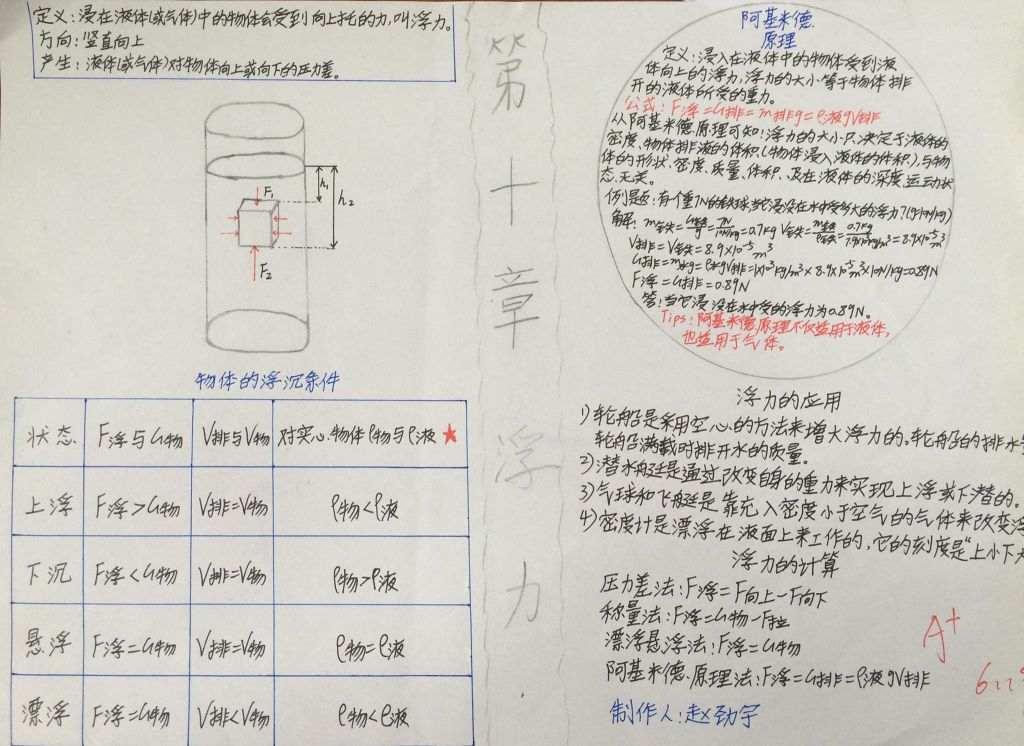 定义：浸在液体(或气体)中的物体会受到向上托的力，叫浮力。
方向：竖直向上
产生：液体(或气体)对物体向上或向下的压力差。
F₁
h₁
h₂
F₂
物体的浮沉条件
状态 F浮与G物 V排与V物 对实心物体ρ物与ρ液 ★
上浮 F浮>G物 V排=V物 ρ物<ρ液
下沉 F浮<G物 V排=V物 ρ物>ρ液
悬浮 F浮=G物 V排=V物 ρ物=ρ液
漂浮 F浮=G物 V排<V物 ρ物<ρ液
第十章 浮力
阿基米德
原理
定义：浸入在液体中的物体受到液
体向上的浮力，浮力的大小等于物体排
开的液体所受的重力。
公式：F浮=G排=m排g=ρ液gV排
从阿基米德原理可知！浮力的大小只决定于液体的
密度、物体排液的体积(物体浸入液体的体积)，与物
体的形状、密度、质量、体积、及在液体的深度运动状
态无关。
例题：有个重7N的铁球，当它浸没在水中受多大的浮力？(g=10N/kg)
解：m铁=G铁/g=7N/10N/kg=0.7kg V铁=m铁/ρ铁=0.7kg/7.9×10³kg/m³=8.9×10⁻⁵m³
V排=V铁=8.9×10⁻⁵m³
G排=m水g=ρ水gV排=1×10³kg/m³×8.9×10⁻⁵m³×10N/kg=0.89N
F浮=G排=0.89N
答：当它浸没在水中受的浮力为0.89N。
Tips：阿基米德原理不仅适用于液体，
也适用于气体。
浮力的应用
1)轮船是采用空心的方法来增大浮力的。轮船的排水
轮船满载时排开水的质量。
2)潜水艇是通过改变自身的重力来实现上浮或下潜的。
3)气球和飞艇是靠充入密度小于空气的气体来改变浮
4)密度计是漂浮在液面上来工作的，它的刻度是"上小下大
浮力的计算
压力差法：F浮=F向上-F向下
称量法：F浮=G物-F拉
漂浮悬浮法：F浮=G物
阿基米德原理法：F浮=G排=ρ液gV排
A+
制作人：赵劲宇